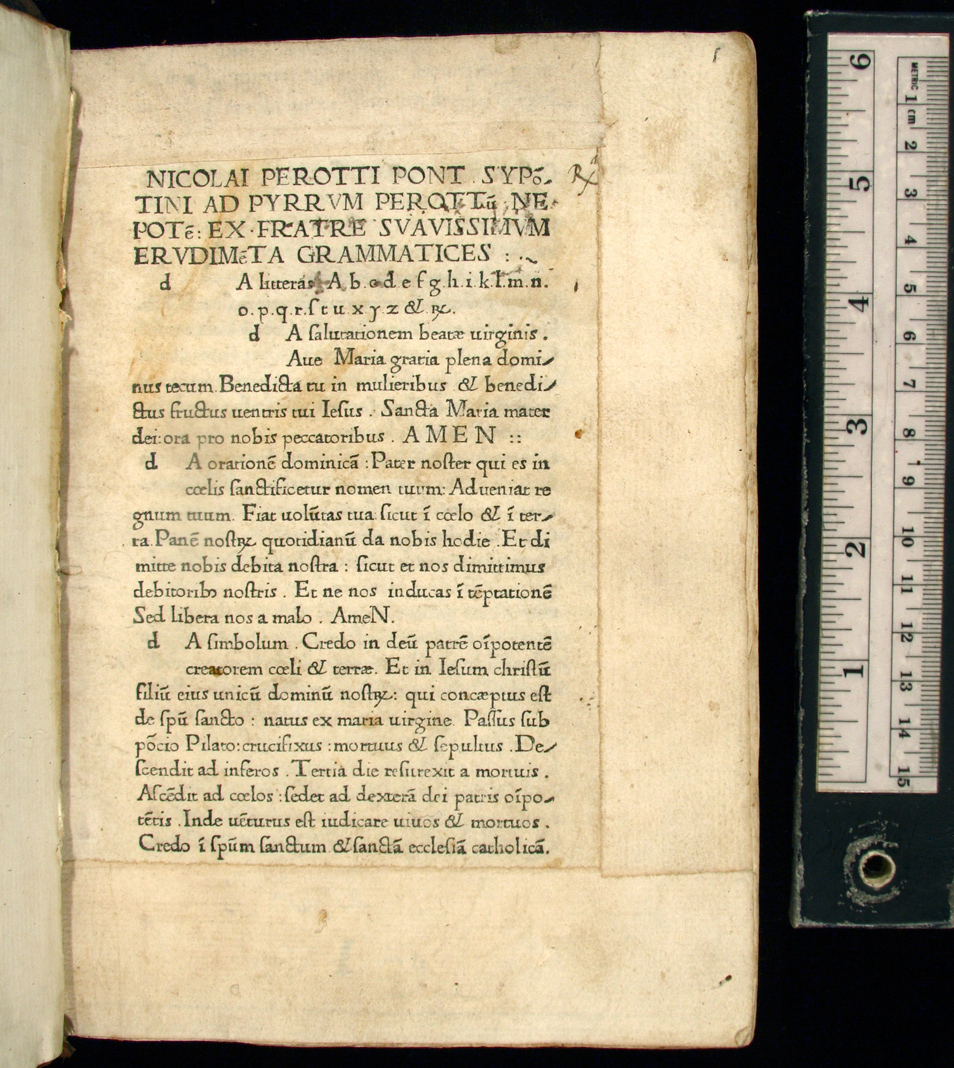 1
NICOLAI PEROTTI PONT . SYPō⸗
TINI AD PYRRVM PEROTTū :NE⸗
POTē: EX·FRATRE SVAVISSIMVM
ERVDIMēTA GRAMMATICES :
d A litteras A. b. c. d. e f g .h. i. k. l. m. n.
o. p. q. r. ſ t u. x y. z & ꝝ.
d A ſalutationem beatæ uirginis .
Aue Maria gratia plena domi⸗
nus tecum. Benedicta tu in mulieribus & benedi⸗
ctus fructus uentris tui Ieſus . Sancta Maria mater
dei: ora pro nobis peccatoribus . A M E N ::
d A orationē dominicā : Pater noſter qui es in
cœlis ſanctificetur nomen tuum: Adueniat re
gnum tuum. Fiat uolūtas tua: ſicut ī cœlo & ī ter⸗
ra. Panē noſtꝝ quotidianū da nobis hodie . Et di
mitte nobis debita noſtra : ſicut et nos dimittimus
debitoribꝰ noſtris . Et ne nos inducas ī tēptationē
Sed libera nos a malo . AmeN.
d A ſimbolum . Credo in deū patrē oīpotentē
creatorem cœli & terræ. Et in Ieſum chriſtū
filiū eius unicū dominū noſtꝝ: qui concæptus eſt
de ſpū ſancto : natus ex maria uirgine. Paſſus ſub
pōcio Pilato: crucifixus : mortuus & ſepultus . De⸗
ſcendit ad inferos . Tertia die reſurexit a mortuis .
Aſcēdit ad cœlos : ſedet ad dexterā dei patris oīpo⸗
tētis . Inde uēturus eſt iudicare uiuos & mortuos .
Credo ī ſpūm ſanctum & ſanctā eccleſiā catholicā.
METRIC 1 cm 2 3 4 5 6 7 8 9 10 11 12 13 14 15
6 5 4 3 2 1